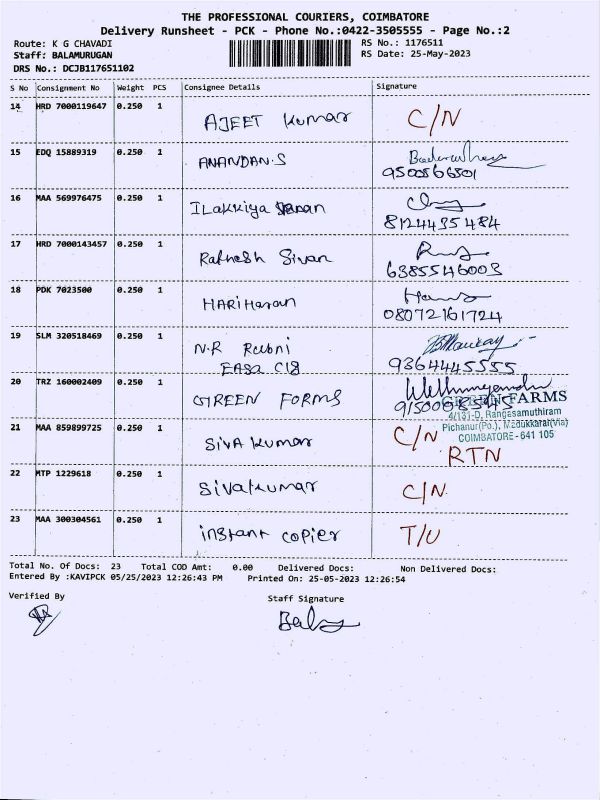 THE PROFESSIONAL COURIERS, COIMBATORE
Delivery Runsheet - PCK - Phone No.:0422-3505555 - Page No.:2
Route: K G CHAVADI RS No.: 1176511
Staff: BALAMURUGAN RS Date: 25-May-2023
DRS No.: DCJB117651102
S No Consignment No Weight PCS Consignee Details Signature
14 HRD 7000119647 0.250 1 AJEET Kumar C/N
15 EDQ 15889319 0.250 1 ANANDAN.S
9500566501
16 MAA 569976475 0.250 1 ILakkiya
8124435484
17 HRD 7000143457 0.250 1 Rathesh Sivan
6385546003
18 PDK 7023500 0.250 1 HARIHaran
08072161724
19 SLM 320518469 0.250 1 N.R
9364445555
20 TRZ 160002409 0.250 1 GREEN FORMS
GREEN FARMS
4/131-D, Rangasamuthiram
Pichanur(Po.), Madukkarai(Via)
COIMBATORE - 641 105
21 MAA 859899725 0.250 1 SIVA Kumar C/N
RTN
22 MTP 1229618 0.250 1 Sivakumar C/N
23 MAA 300304561 0.250 1 instant copier T/U
Total No. Of Docs: 23 Total COD Amt: 0.00 Delivered Docs: Non Delivered Docs:
Entered By :KAVIPCK 05/25/2023 12:26:43 PM Printed On: 25-05-2023 12:26:54
Verified By Staff Signature